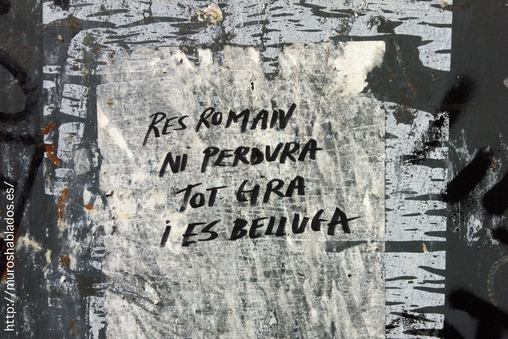 RES ROMAN
NI PERDURA
TOT GIRA
i ES BELLUGA
http://muroshablados.es/